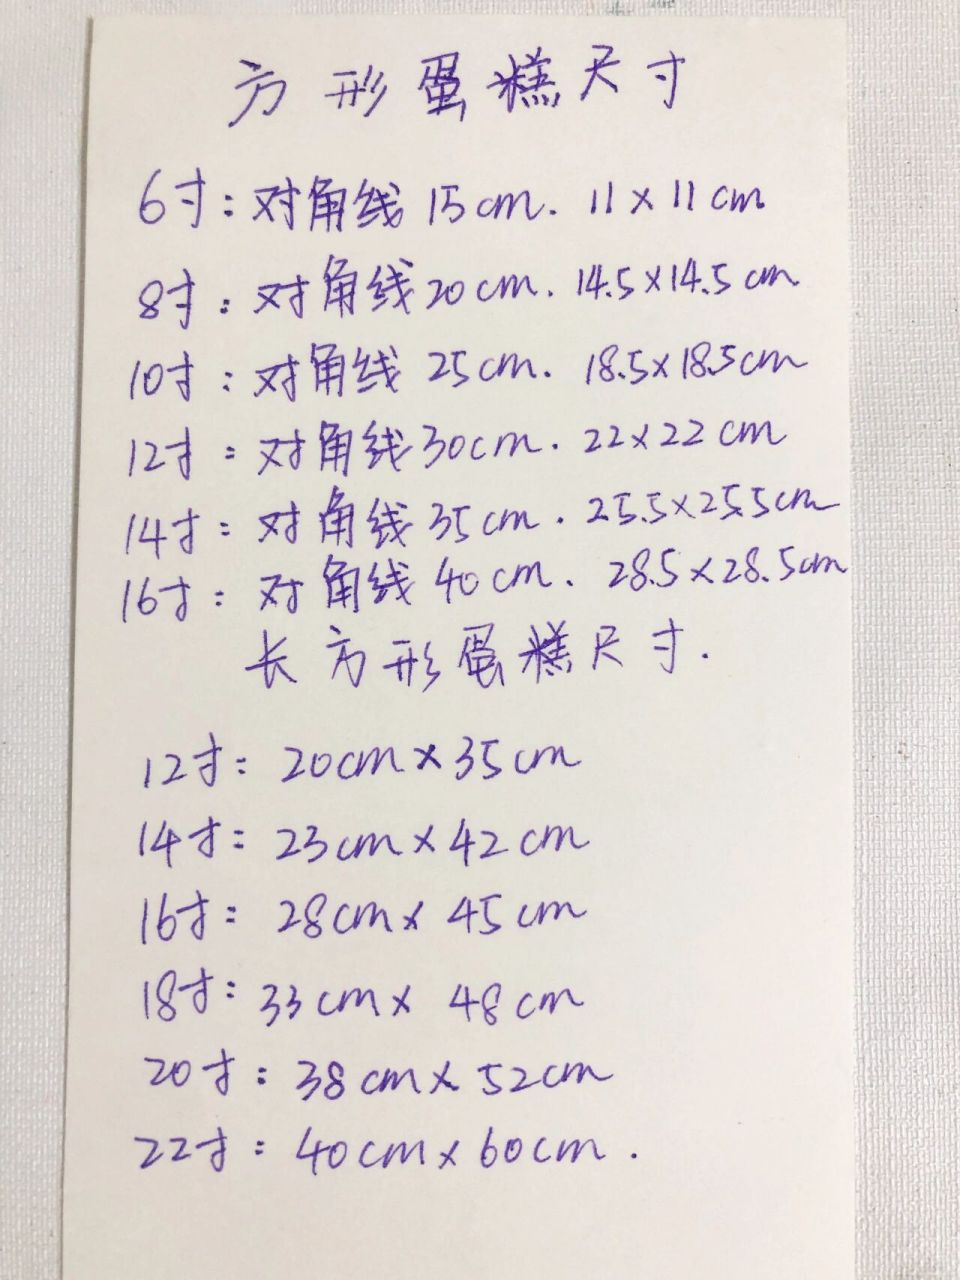 方形蛋糕尺寸
6寸：对角线15cm．11×11cm
8寸：对角线20cm．14.5×14.5cm
10寸：对角线25cm．18.5×18.5cm
12寸：对角线30cm．22×22cm
14寸：对角线35cm．25.5×25.5cm
16寸：对角线40cm．28.5×28.5cm
长方形蛋糕尺寸．
12寸：20cm×35cm
14寸：23cm×42cm
16寸：28cm×45cm
18寸：33cm×48cm
20寸：38cm×52cm
22寸：40cm×60cm．